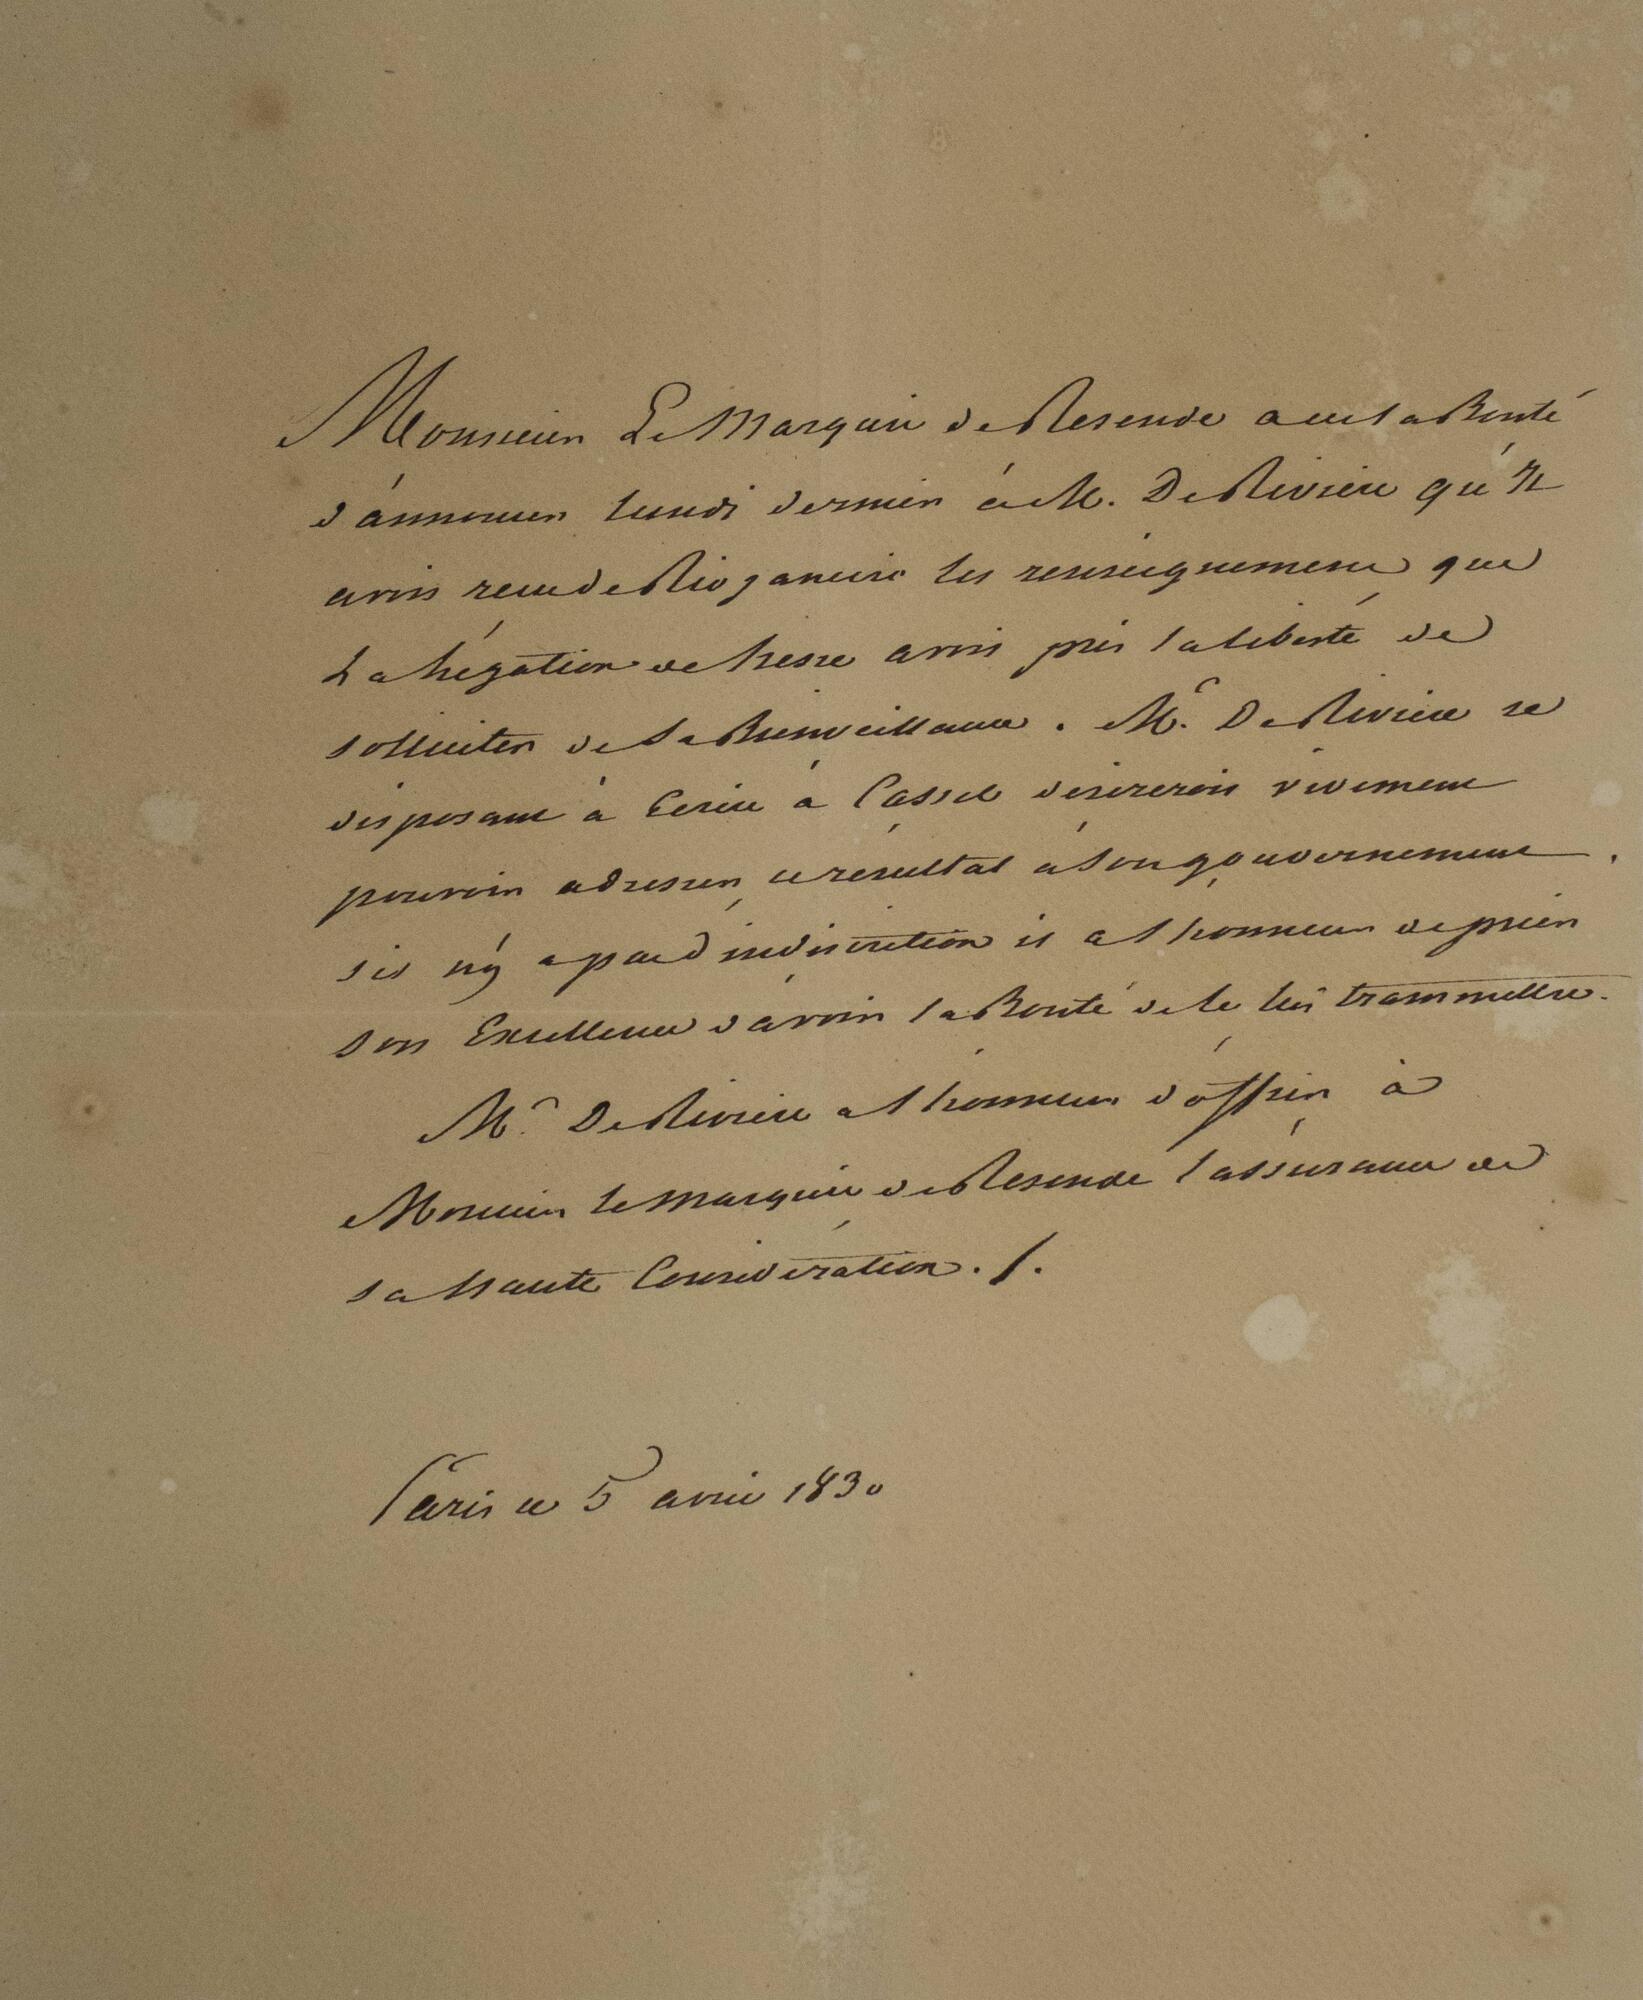 Monsieur Le Marquis de Resende a eu la Bonté
d'annoncer lundi dernier à M. De Riviere qu'Il
avoit reçu de Rio janeiro les renseignemens que
La légation de hesse avoit pris la liberté de
solliciter de Sa Bienveillance. Mr. De Riviere se
disposant à Ecrire à Cassel désireroit vivement
pouvoir adresser ce résultat à son gouvernement.
s'il n'y a pas d'indiscrétion il a l'honneur de prier
Son Excellence d'avoir la Bonté de le lui transmettre.
Mr. De Riviere a l'honneur d'offrir à
Monsieur le Marquis de Resende l'assurance de
sa haute Considération. /.
Paris ce 5 avril 1830